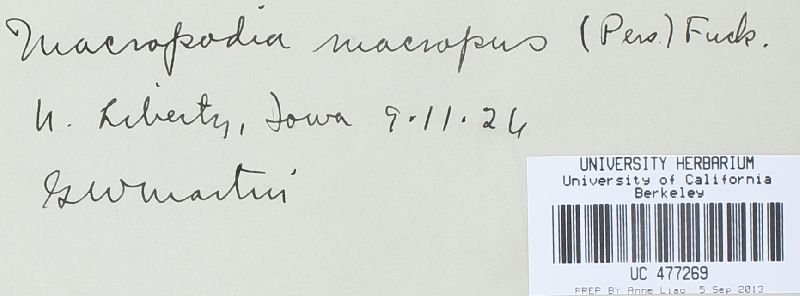 Macropodia macropus (Pers.) Fuck.
N. Liberty, Iowa 9.11.26
GW Martin
UNIVERSITY HERBARIUM
University of California
Berkeley
UC 477269
PREP BY Anne Liao, 5 Sep 2013